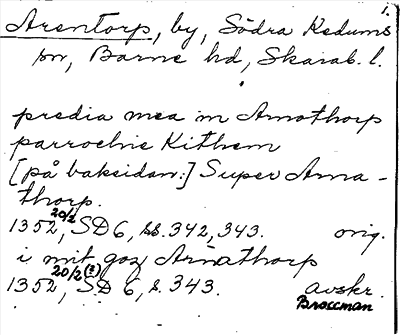 1.
Arentorp, by, Södra Kedums
sn, Barne hd, Skarab. l.
predia mea in Arnathorp
parrochie Kithem
[på baksidan:] Super Arna-
thorp.
1352 20/2, SD 6, ss. 342, 343. orig.
i mit goz Arnathorp
1352 20/2 (?), SD 6, s. 343. avskr.
Brocman